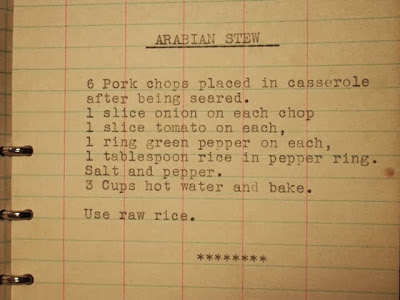 ARABIAN STEW
6 Pork chops placed in casserole
after being seared.
1 slice onion on each chop
1 slice tomato on each,
1 ring green pepper on each,
1 tablespoon rice in pepper ring.
Salt and pepper.
3 Cups hot water and bake.
Use raw rice.
********